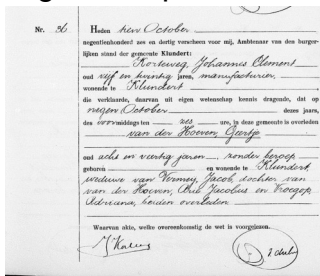 Nr. 36 Heden tien October
negentienhonderd zes en dertig verscheen voor mij, Ambtenaar van den burger-
lijken stand der gemeente Klundert:
Korteweg, Johannes Clement
oud vijf en twintig jaren, manufacturier,
wonende te Klundert
die verklaarde, daarvan uit eigen wetenschap kennis dragende, dat op
negen October dezes jaars,
des voormiddags ten zes ure, in deze gemeente is overleden
van der Hoeven, Geertje
oud acht en veertig jaren, zonder beroep
geboren en wonende te Klundert,
weduwe van Vermey, Jacob, dochter van
van der Hoeven, Arie Jacobus en
Adriana, beiden overleden.
Waarvan akte, welke overeenkomstig de wet is voorgelezen.